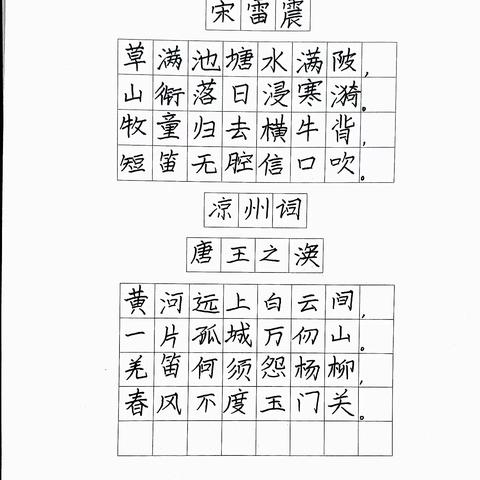 宋雷震
草满池塘水满陂，
山衔落日浸寒漪。
牧童归去横牛背，
短笛无腔信口吹。
凉州词
唐王之涣
黄河远上白云间，
一片孤城万仞山。
羌笛何须怨杨柳，
春风不度玉门关。